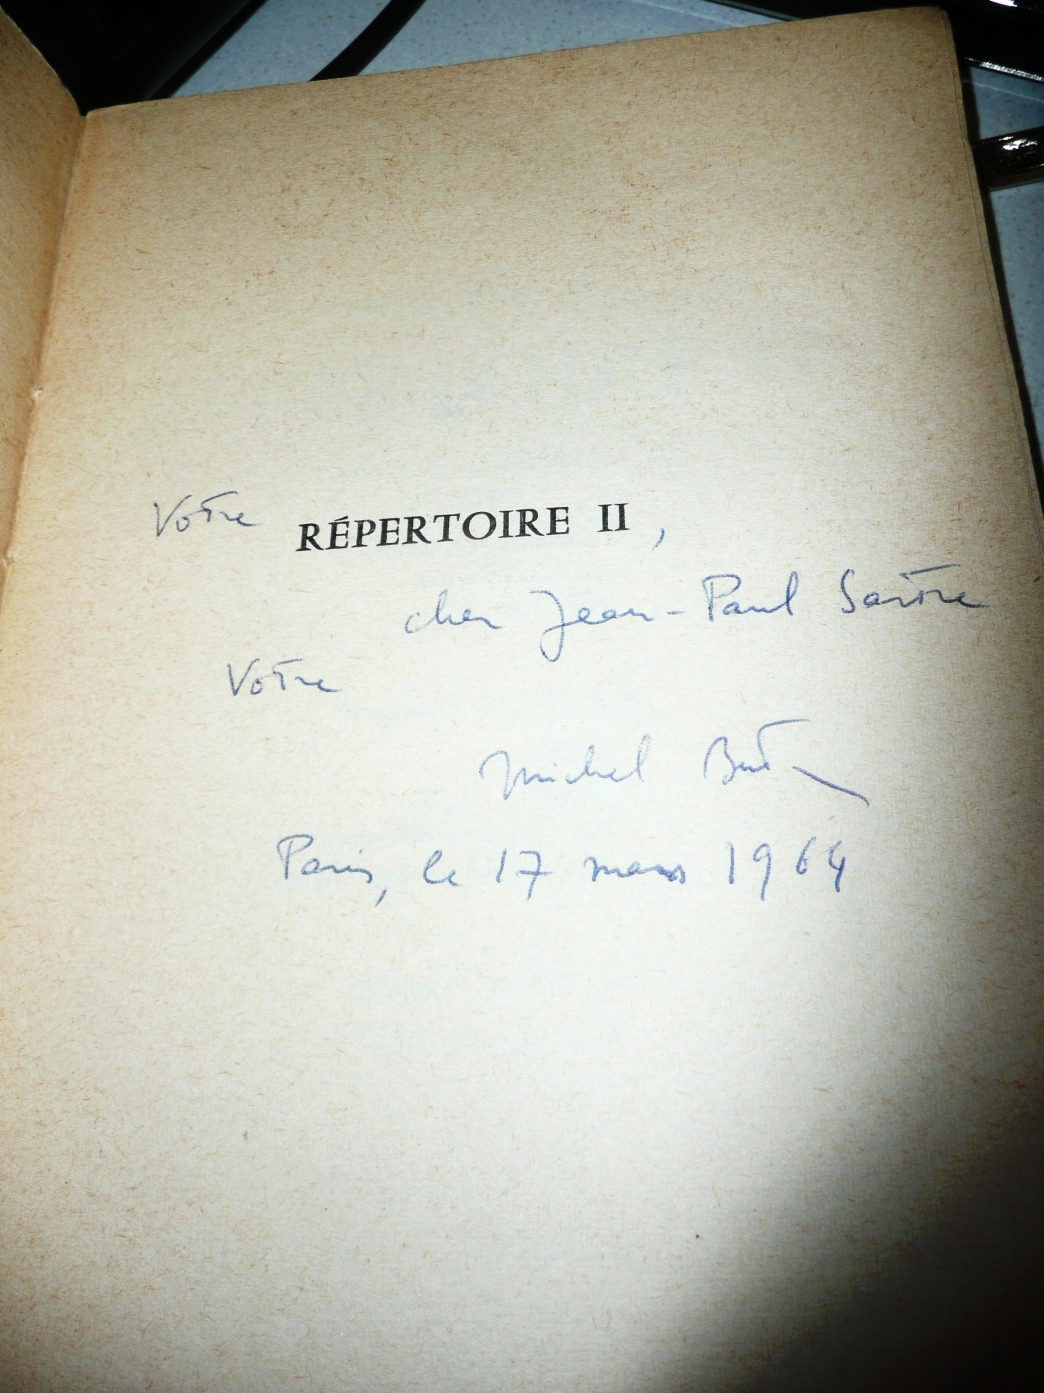 Votre RÉPERTOIRE II,
cher Jean-Paul Sartre
Votre
Michel Butor
Paris, le 17 mars 1964